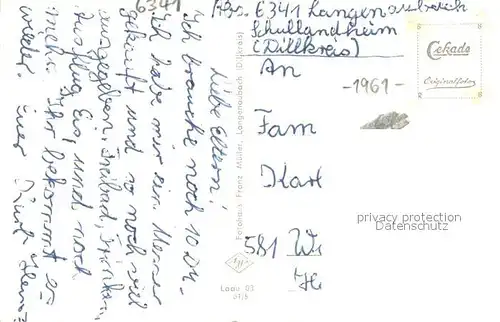 6341
Liebe Eltern!
Ich brauche noch 10 DM.
Ich habe mir ein Messer
gekauft und so noch viel
ausgegeben. Freibad, Trinken,
Ausflug, Eis, und noch
mehr. Ihr bekommt es
wieder. Euer
Fotohaus Franz Müller, Langenaubach (Dillkreis)
Abs. 6341 Langenaubach
Schullandheim
(Dillkreis)
An
Cekade
Originalfoto
-1961-
Fam
Karl
581 Wi
privacy protection
Datenschutz
Laau 03